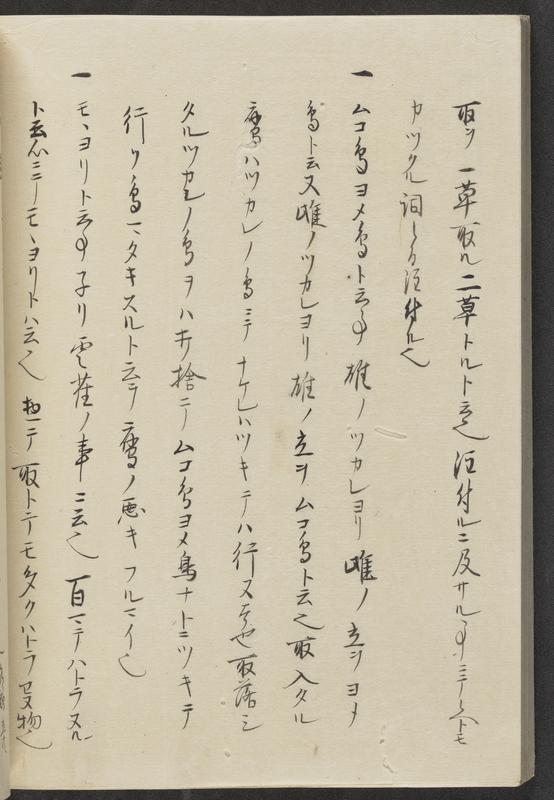 取ツ一草取ル二草トルト云也注付ルニ及サルヿニテ候ヘトモ
カツクル詞トシル注付ルヘ
一ムコ鳥ヨメ鳥ト云ヿ雄ノツカレヨリ雌ノ立ヲヨメ
鳥ト云又雌ノツカレヨリ雄ノ立ヲムコ鳥ト云也取入タル
鷹ハツカレノ鳥ニテナケレハツキテハ行ス也取落シ
タルツカレノ鳥ヲハキ捨ニテムコ鳥ヨメ鳥ナトニツキテ
行ク鳥一タキスルト云テ鷹ノ悪キフルマイ也
一モヽヨリト云ヿ子リ雲雀ノ事ニ云也百マテハトラヌル
ト云心ニテモヽヨリトハ云也惣テ取トテモ多クハトラヌ物也